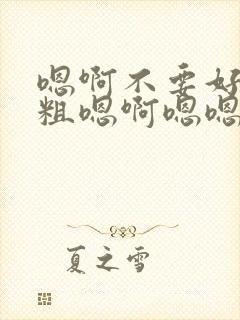 嗯啊不要好
粗嗯啊嗯嗯
夏之雪